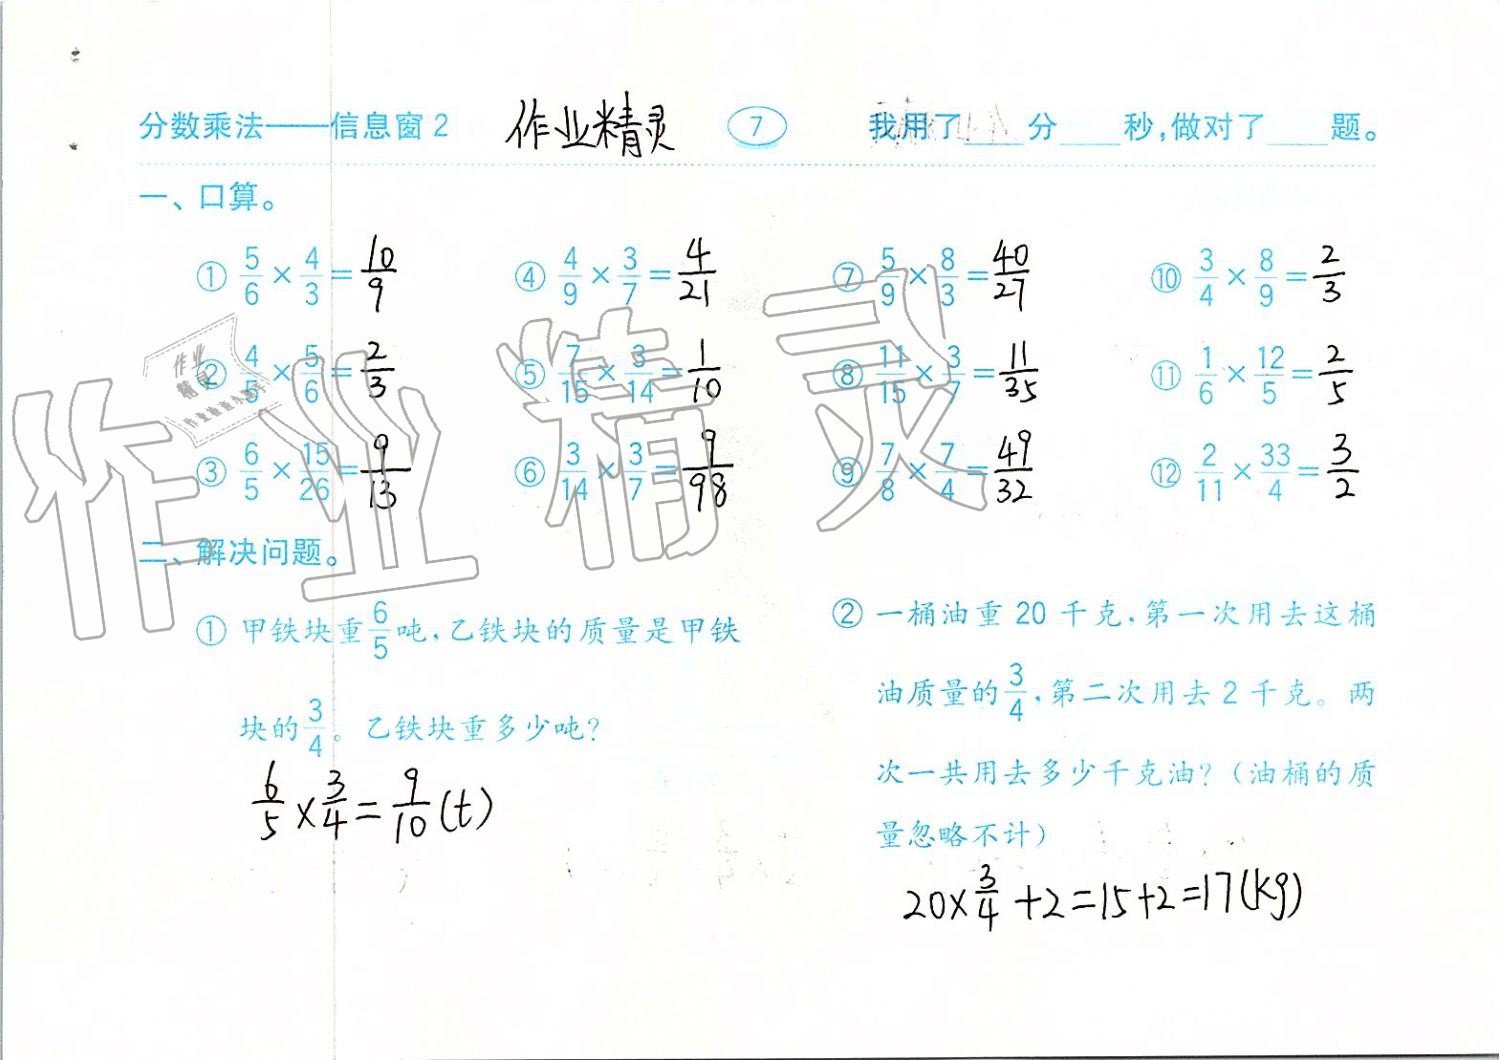 分数乘法——信息窗2 作业精灵 7 我用了____分____秒,做对了____题。
一、口算。
① 5/6 × 4/3 = 10/9 ④ 4/9 × 3/7 = 4/21 ⑦ 5/9 × 8/3 = 40/27 ⑩ 3/4 × 8/9 = 2/3
② 4/5 × 5/6 = 2/3 ⑤ 7/15 × 3/14 = 1/10 ⑧ 11/15 × 3/7 = 11/35 ⑪ 1/6 × 12/5 = 2/5
③ 6/5 × 15/26 = 9/13 ⑥ 3/14 × 3/7 = 9/98 ⑨ 7/8 × 7/4 = 49/32 ⑫ 2/11 × 33/4 = 3/2
作业精灵
作业
精灵
二、解决问题。
① 甲铁块重6/5吨,乙铁块的质量是甲铁
块的3/4。乙铁块重多少吨?
6/5 × 3/4 = 9/10 (t)
② 一桶油重20千克,第一次用去这桶
油质量的3/4,第二次用去2千克。两
次一共用去多少千克油?(油桶的质
量忽略不计)
20 × 3/4 + 2 = 15 + 2 = 17 (kg)